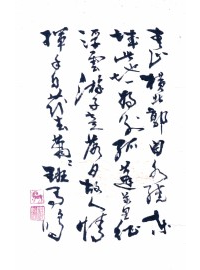 青山橫北郭白水繞東
城此地一為別孤蓬萬里征
浮雲游子意落日故人情
揮手自茲去蕭々班馬鳴